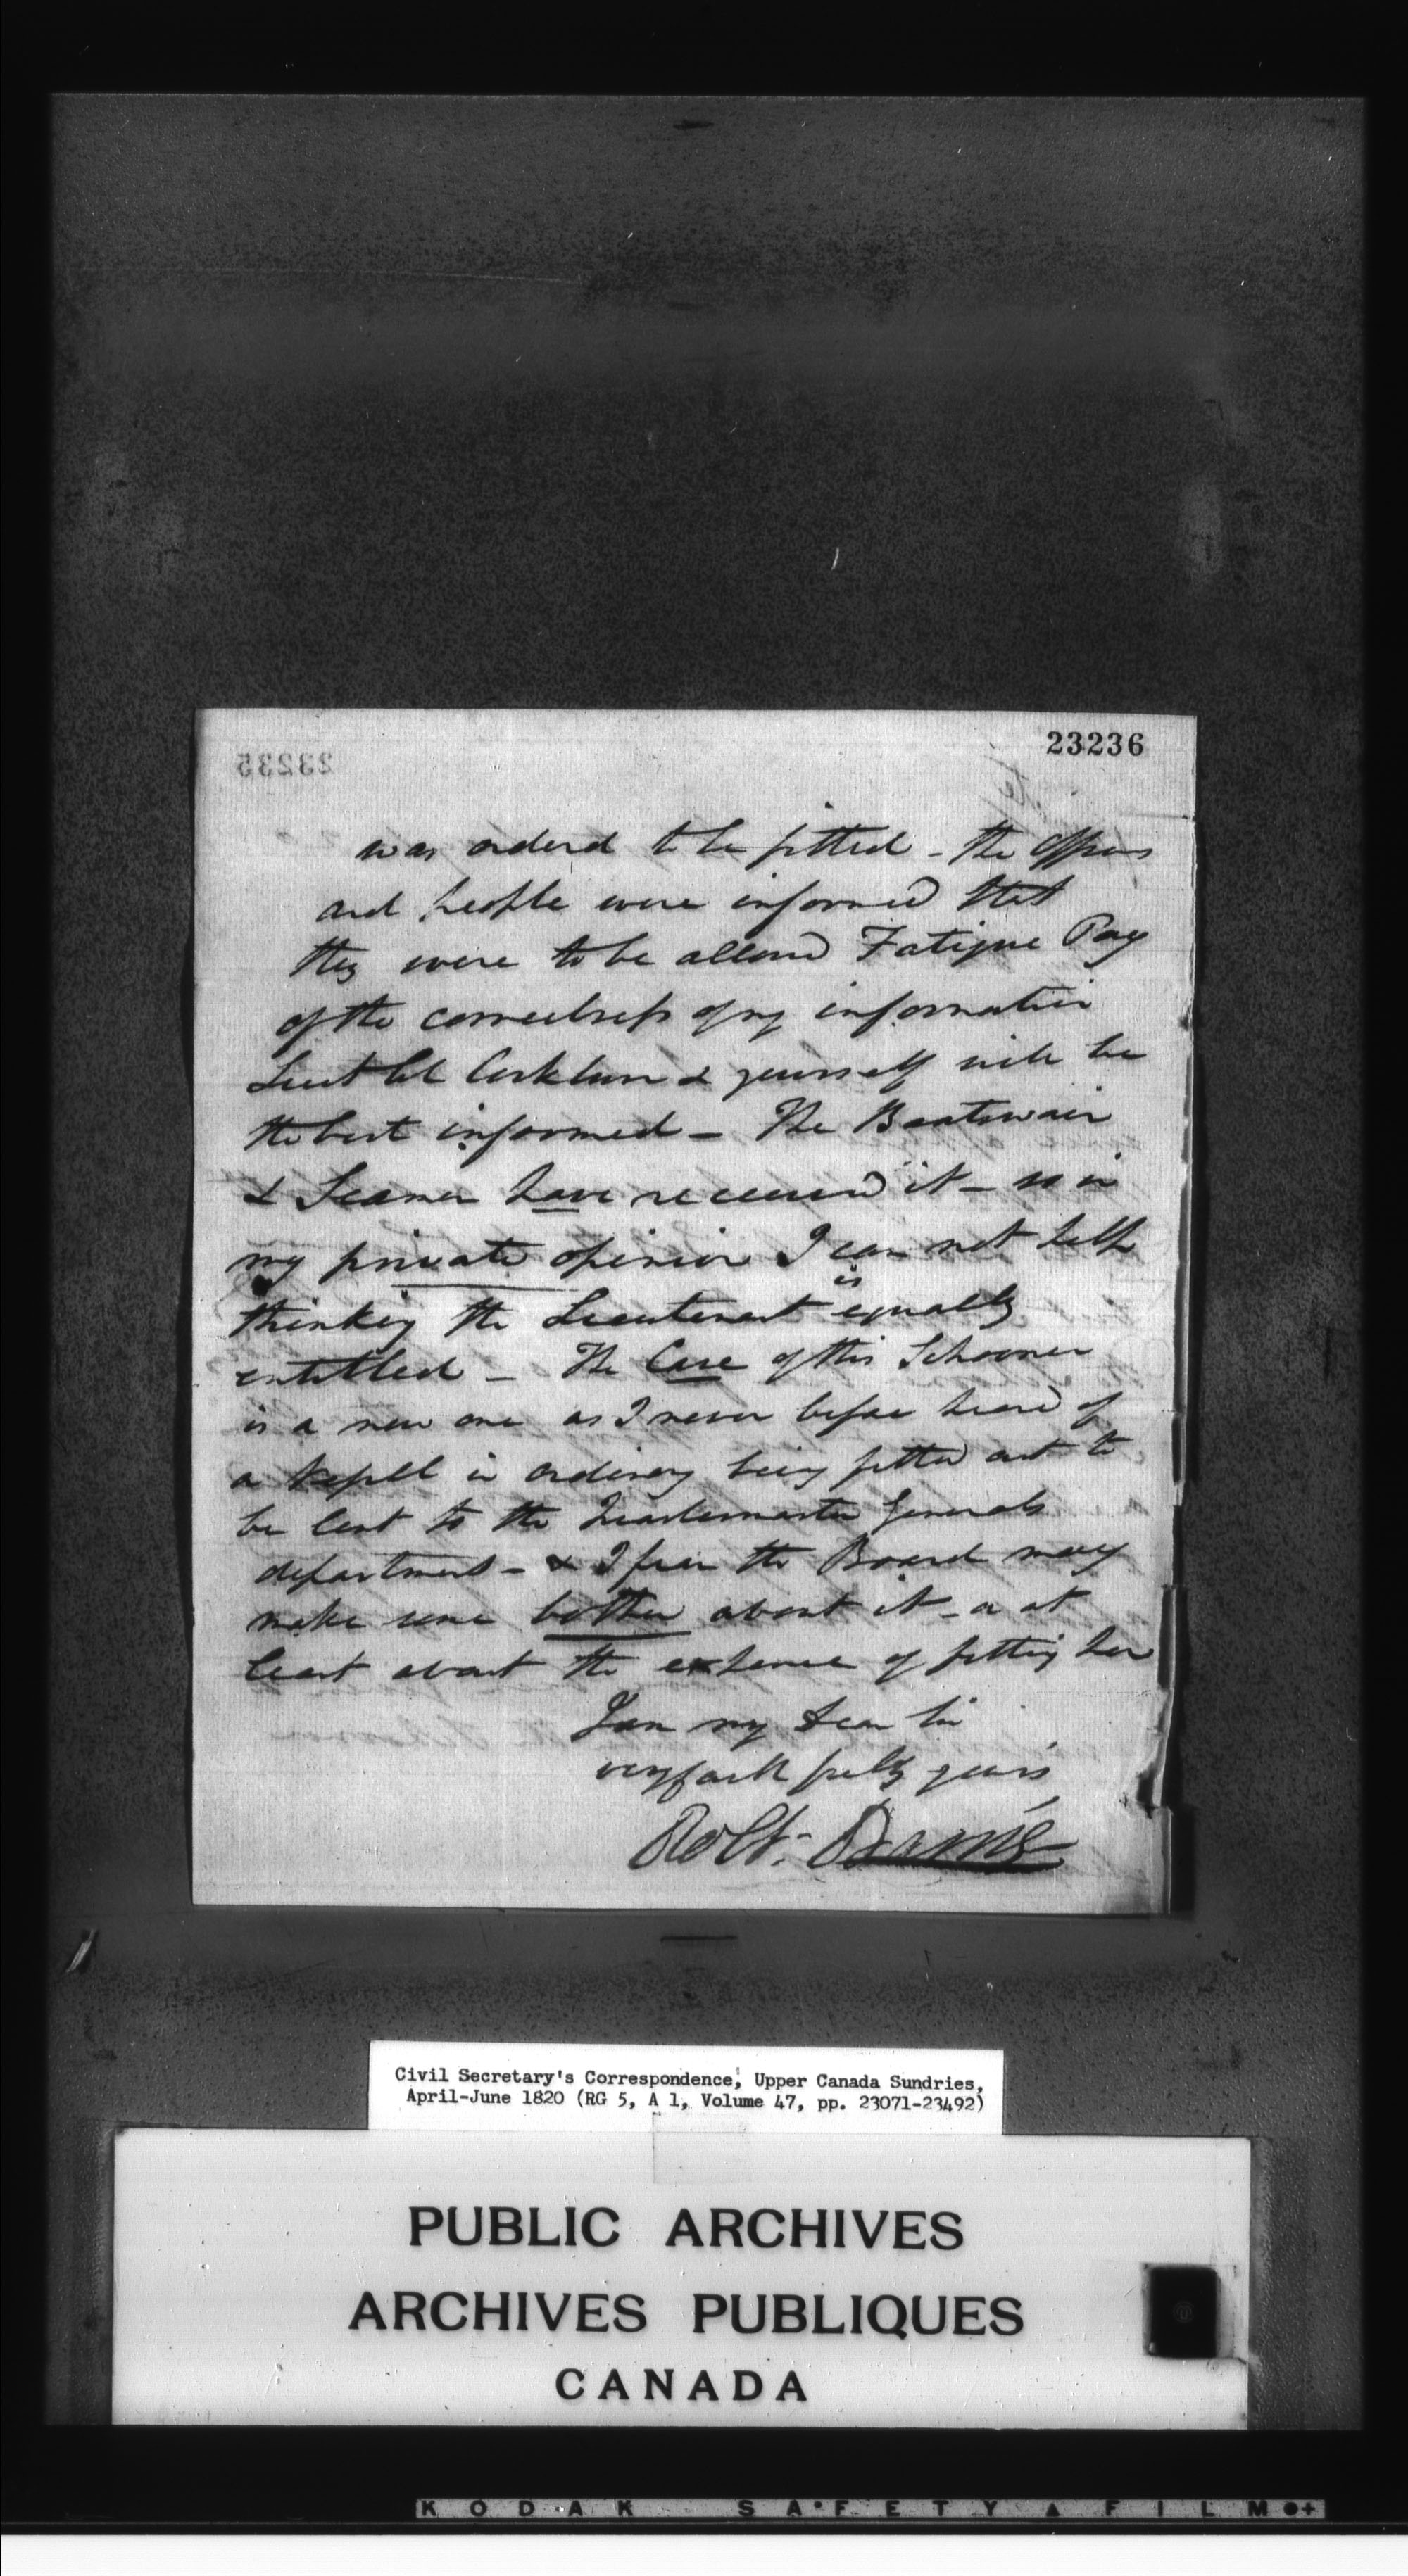 23236
23235
was orderd to be fitted - the officers
and people were informed that
they were to be allowd Fatigue Pay
of the correctness of my information
Lieut Col Cockburn & yourself will be
the best informed - The Boatswain
& Seamen have received it - so in
my private opinion I can not help
thinking the Lieutenant is equally
entitled - The Case of this Schooner
is a new one as I never before heard of
a Vessel in ordinary being fitted out to
be lent to the Quartermaster Generals
department - & I fear the Board may
make some bother about it - or at
least about the expence of fitting her
I am my Dear Sir
very faithfully yours
Robt.
Civil Secretary's Correspondence, Upper Canada Sundries,
April-June 1820 (RG 5, A 1, Volume 47, pp. 23071-23492)
PUBLIC ARCHIVES
ARCHIVES PUBLIQUES
CANADA
KODAK SAFETY FILM